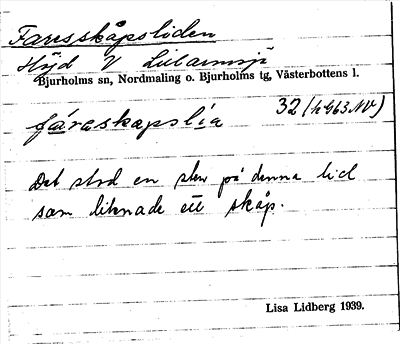 Faresskåpsliden
Höjd V Lillarmsjö
Bjurholms sn, Nordmaling o. Bjurholms tg, Västerbottens l.
fáreskapslia 32 (h 663 NV)
Det stod en sten på denna lid
som liknade ett skåp.
Lisa Lidberg 1939.